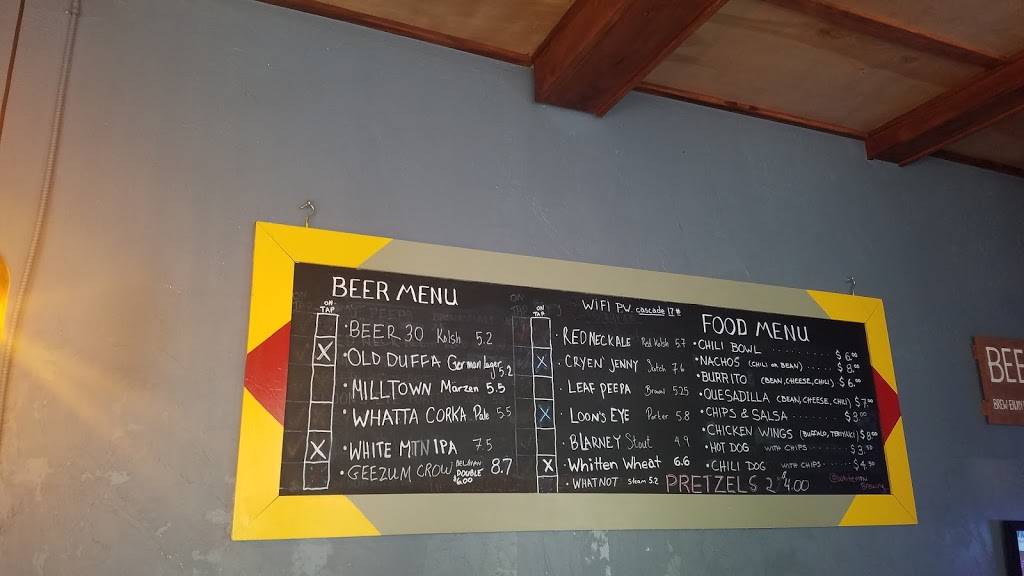 BEER MENU
ON TAP
• BEER 30 Kolsh 5.2
• OLD DUFFA German lager 5.2
• MILLTOWN Märzen 5.5
• WHATTA CORKA Pale 5.5
• WHITE MTN IPA 7.5
• GEEZUM CROW BELGIAN DOUBLE $6.00 8.7
WIFI PW. cascade 17#
ON TAP
• REDNECKALE Red Kolsh 5.7
• CRYEN' JENNY Scotch 7.6
• LEAF PEEPA Brown 5.25
• LOON'S EYE Porter 5.8
• BLARNEY Stout 4.9
• Whitten Wheat 6.6
• WHATNOT steam 5.2
FOOD MENU
• CHILI BOWL $6.00
• NACHOS (CHILI OR BEAN) $8.00
• BURRITO (BEAN, CHEESE, CHILI) $6.00
• QUESADILLA (BEAN, CHEESE, CHILI) $7.00
• CHIPS & SALSA $3.00
• CHICKEN WINGS (BUFFALO, TERIYAKI) $8.00
• HOT DOG WITH CHIPS $3.50
• CHILI DOG WITH CHIPS $4.50
PRETZELS 2 $4.00
@WHITEMTN
BREWING
BEE
BREW ENJOY